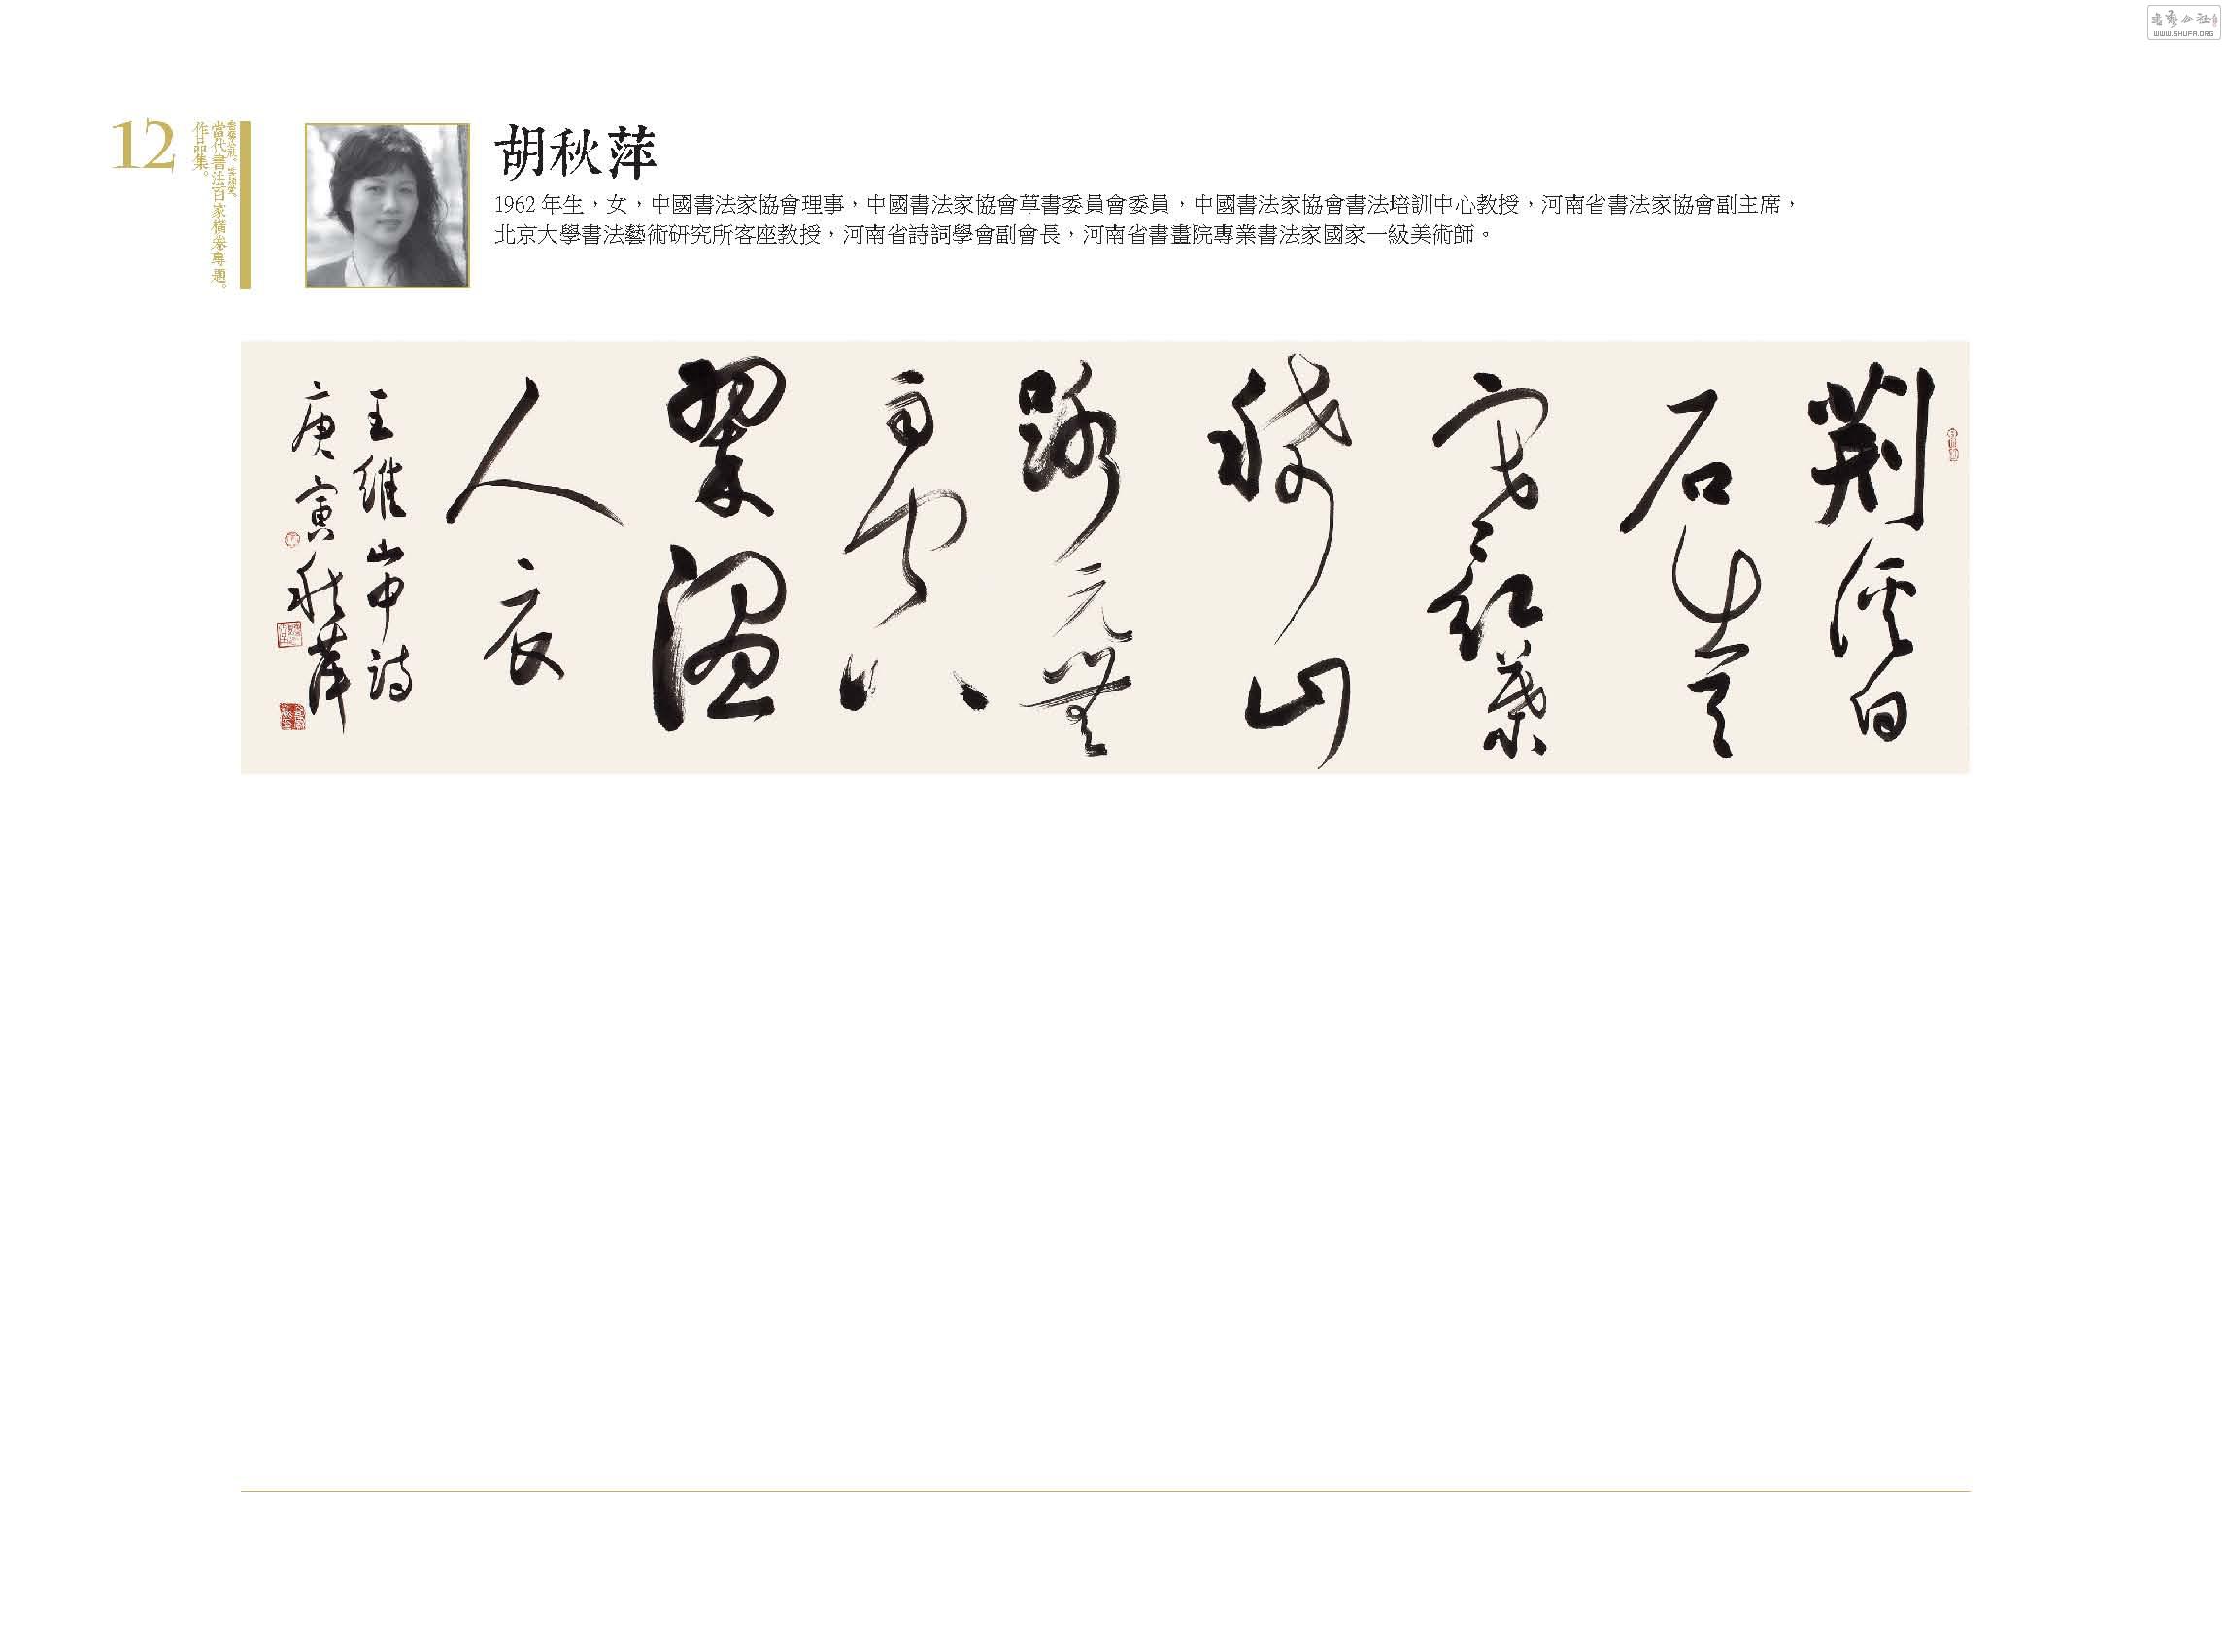 書藝公社
WWW.SHUFA.ORG
12
當代書法百家橫卷專題。
作品集。
胡秋萍
1962 年生，女，中國書法家協會理事，中國書法家協會草書委員會委員，中國書法家協會書法培訓中心教授，河南省書法家協會副主席，
北京大學書法藝術研究所客座教授，河南省詩詞學會副會長，河南省書畫院專業書法家國家一級美術師。
荆溪白
石出天
寒紅葉
稀山
路元無
雨空
翠濕
人衣
王維山中詩
庚寅秋萍